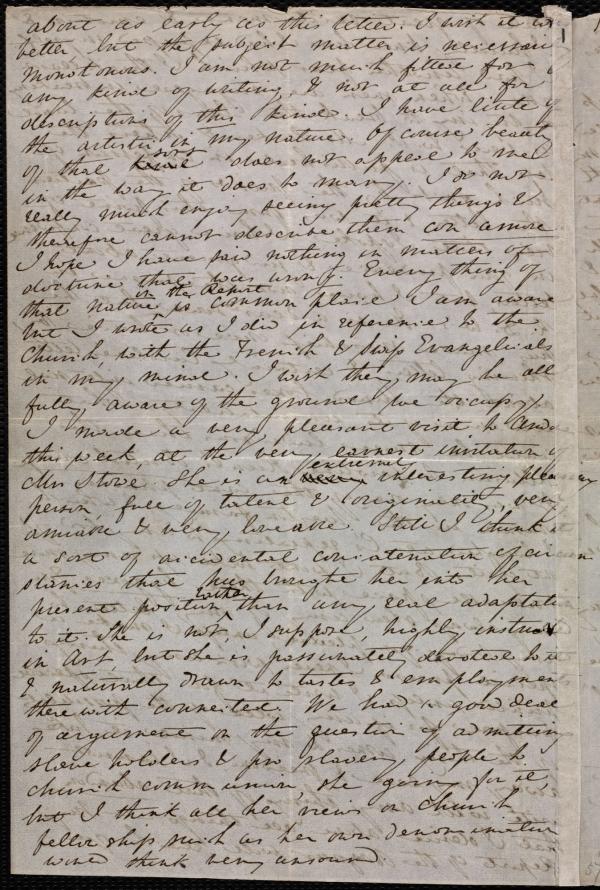 about as early as this letter. I wish it were
better, but the subject matter is necessarily
monotonous. I am not much fitted for
any kind of writing, & not at all for
descriptions of this kind. I have little of
the artistic in my nature. Of course beauty
of that sort does not appeal to me
in the way it does to many. I do not
really much enjoy seeing pretty things &
therefore cannot describe them con amore
I hope I have said nothing in matters of
doctrine that was wrong. Every thing of
that nature in the Report is common place I am aware
but I wrote as I did in reference to the
Church, with the French & Swiss Evangelicals
in my mind. I wish they may be all
fully aware of the ground we occupy.
I made a very pleasant visit to
this week, at the very earnest invitation of
Mrs Stowe. She is an extremely interesting
person, full of talent & originality, very
amiable & very loveable. Still I think it
a sort of accidental concatenation of circum
stances that has brought her into her
present position rather than any real adaptation
to it. She is not, I suppose, highly instructed
in Art, but she is passionately devoted to it
& naturally drawn to tastes & employments
therewith connected. We had a good deal
of argument on the question of admitting
slave holders & pro slavery people to
church communion, she going for it,
but I think all her views on Church
fellowship such as her own denomination
would think very unsound